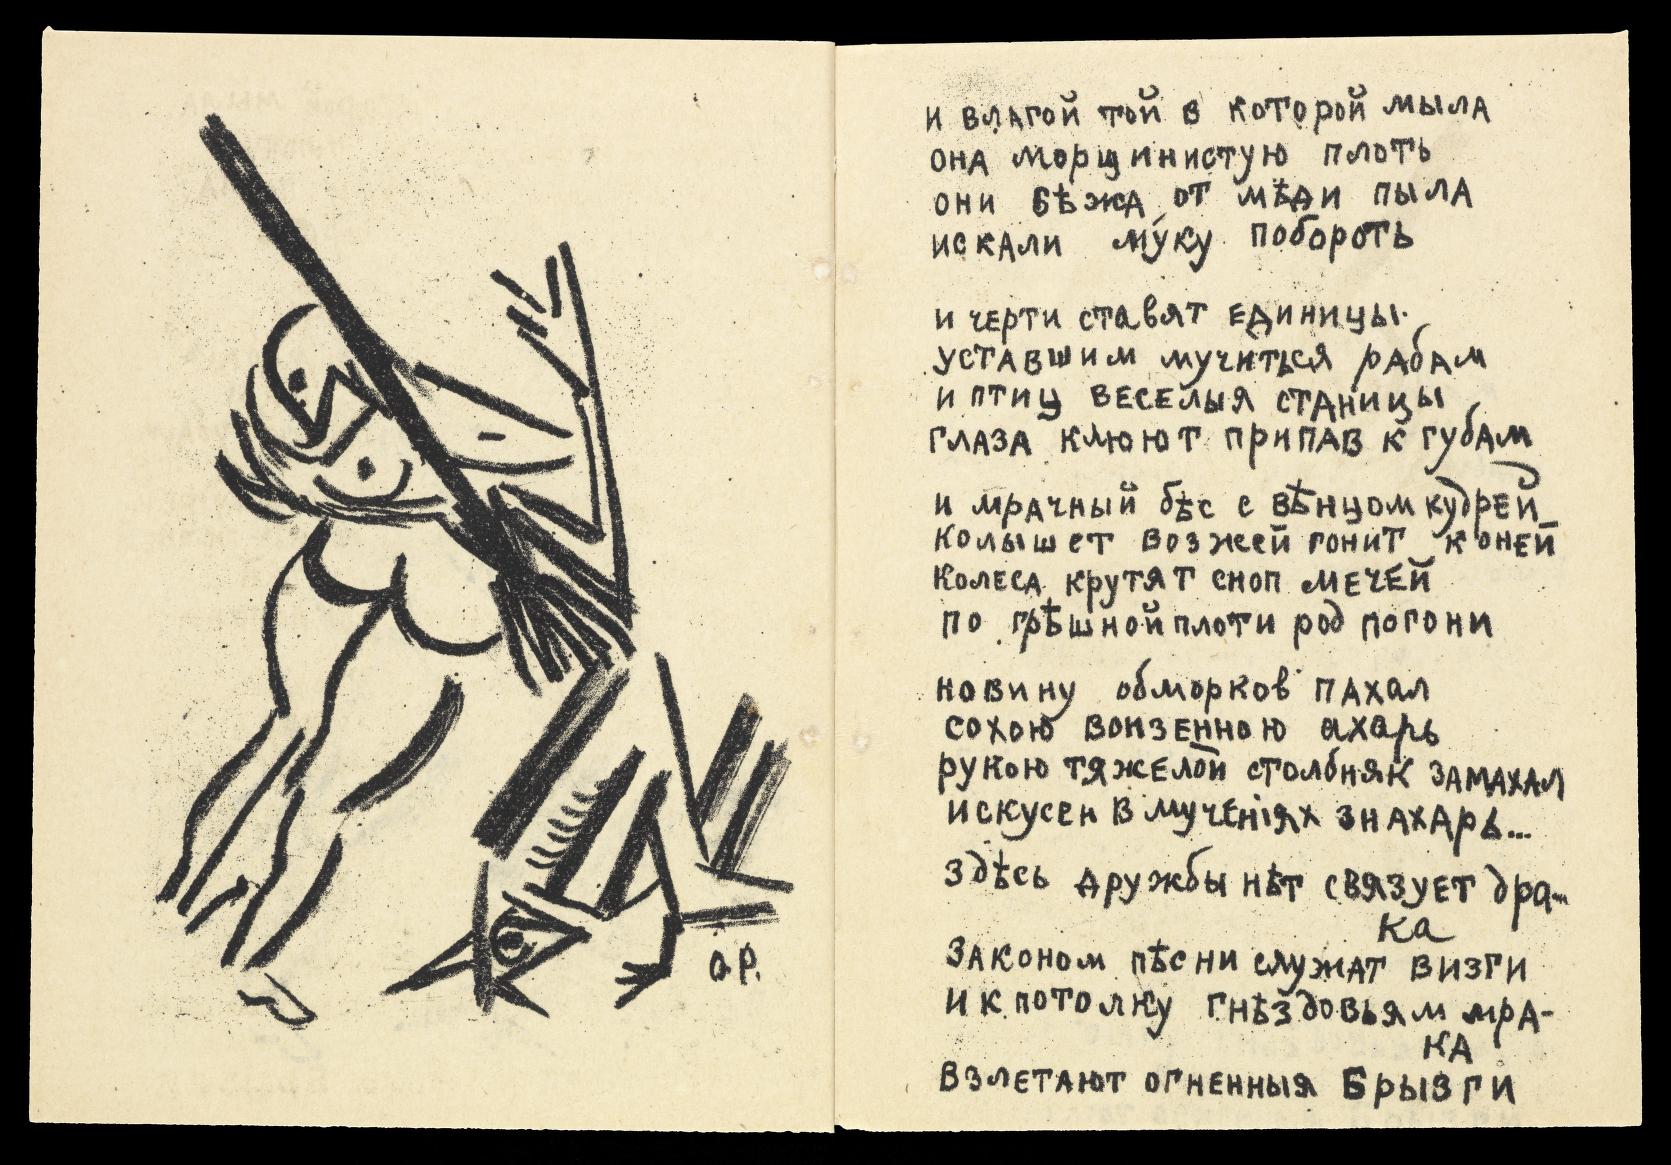 О.Р.
и влагой той в которой мыла
она морщинистую плоть
они бѣжа от мѣди пыла
искали му́ку побороть
и черти ставят единицы.
уставшим мучиться рабам
и птиц веселыя станицы
глаза клюют припав к губам
и мрачный бѣс с вѣнцом кудрей
колышет возжей гонит коней
колеса крутят сноп мечей
по грѣшной плоти род погони
новину обморков пахал
сохою вонзенною ахарь
рукою тяжелой столбняк замахал
искусен в мученiях знахарь...
здѣсь дружбы нѣт связует дра-
ка
законом пѣсни служат визги
и к потолку гнѣздовьям мра-
ка
взлетают огненныя брызги